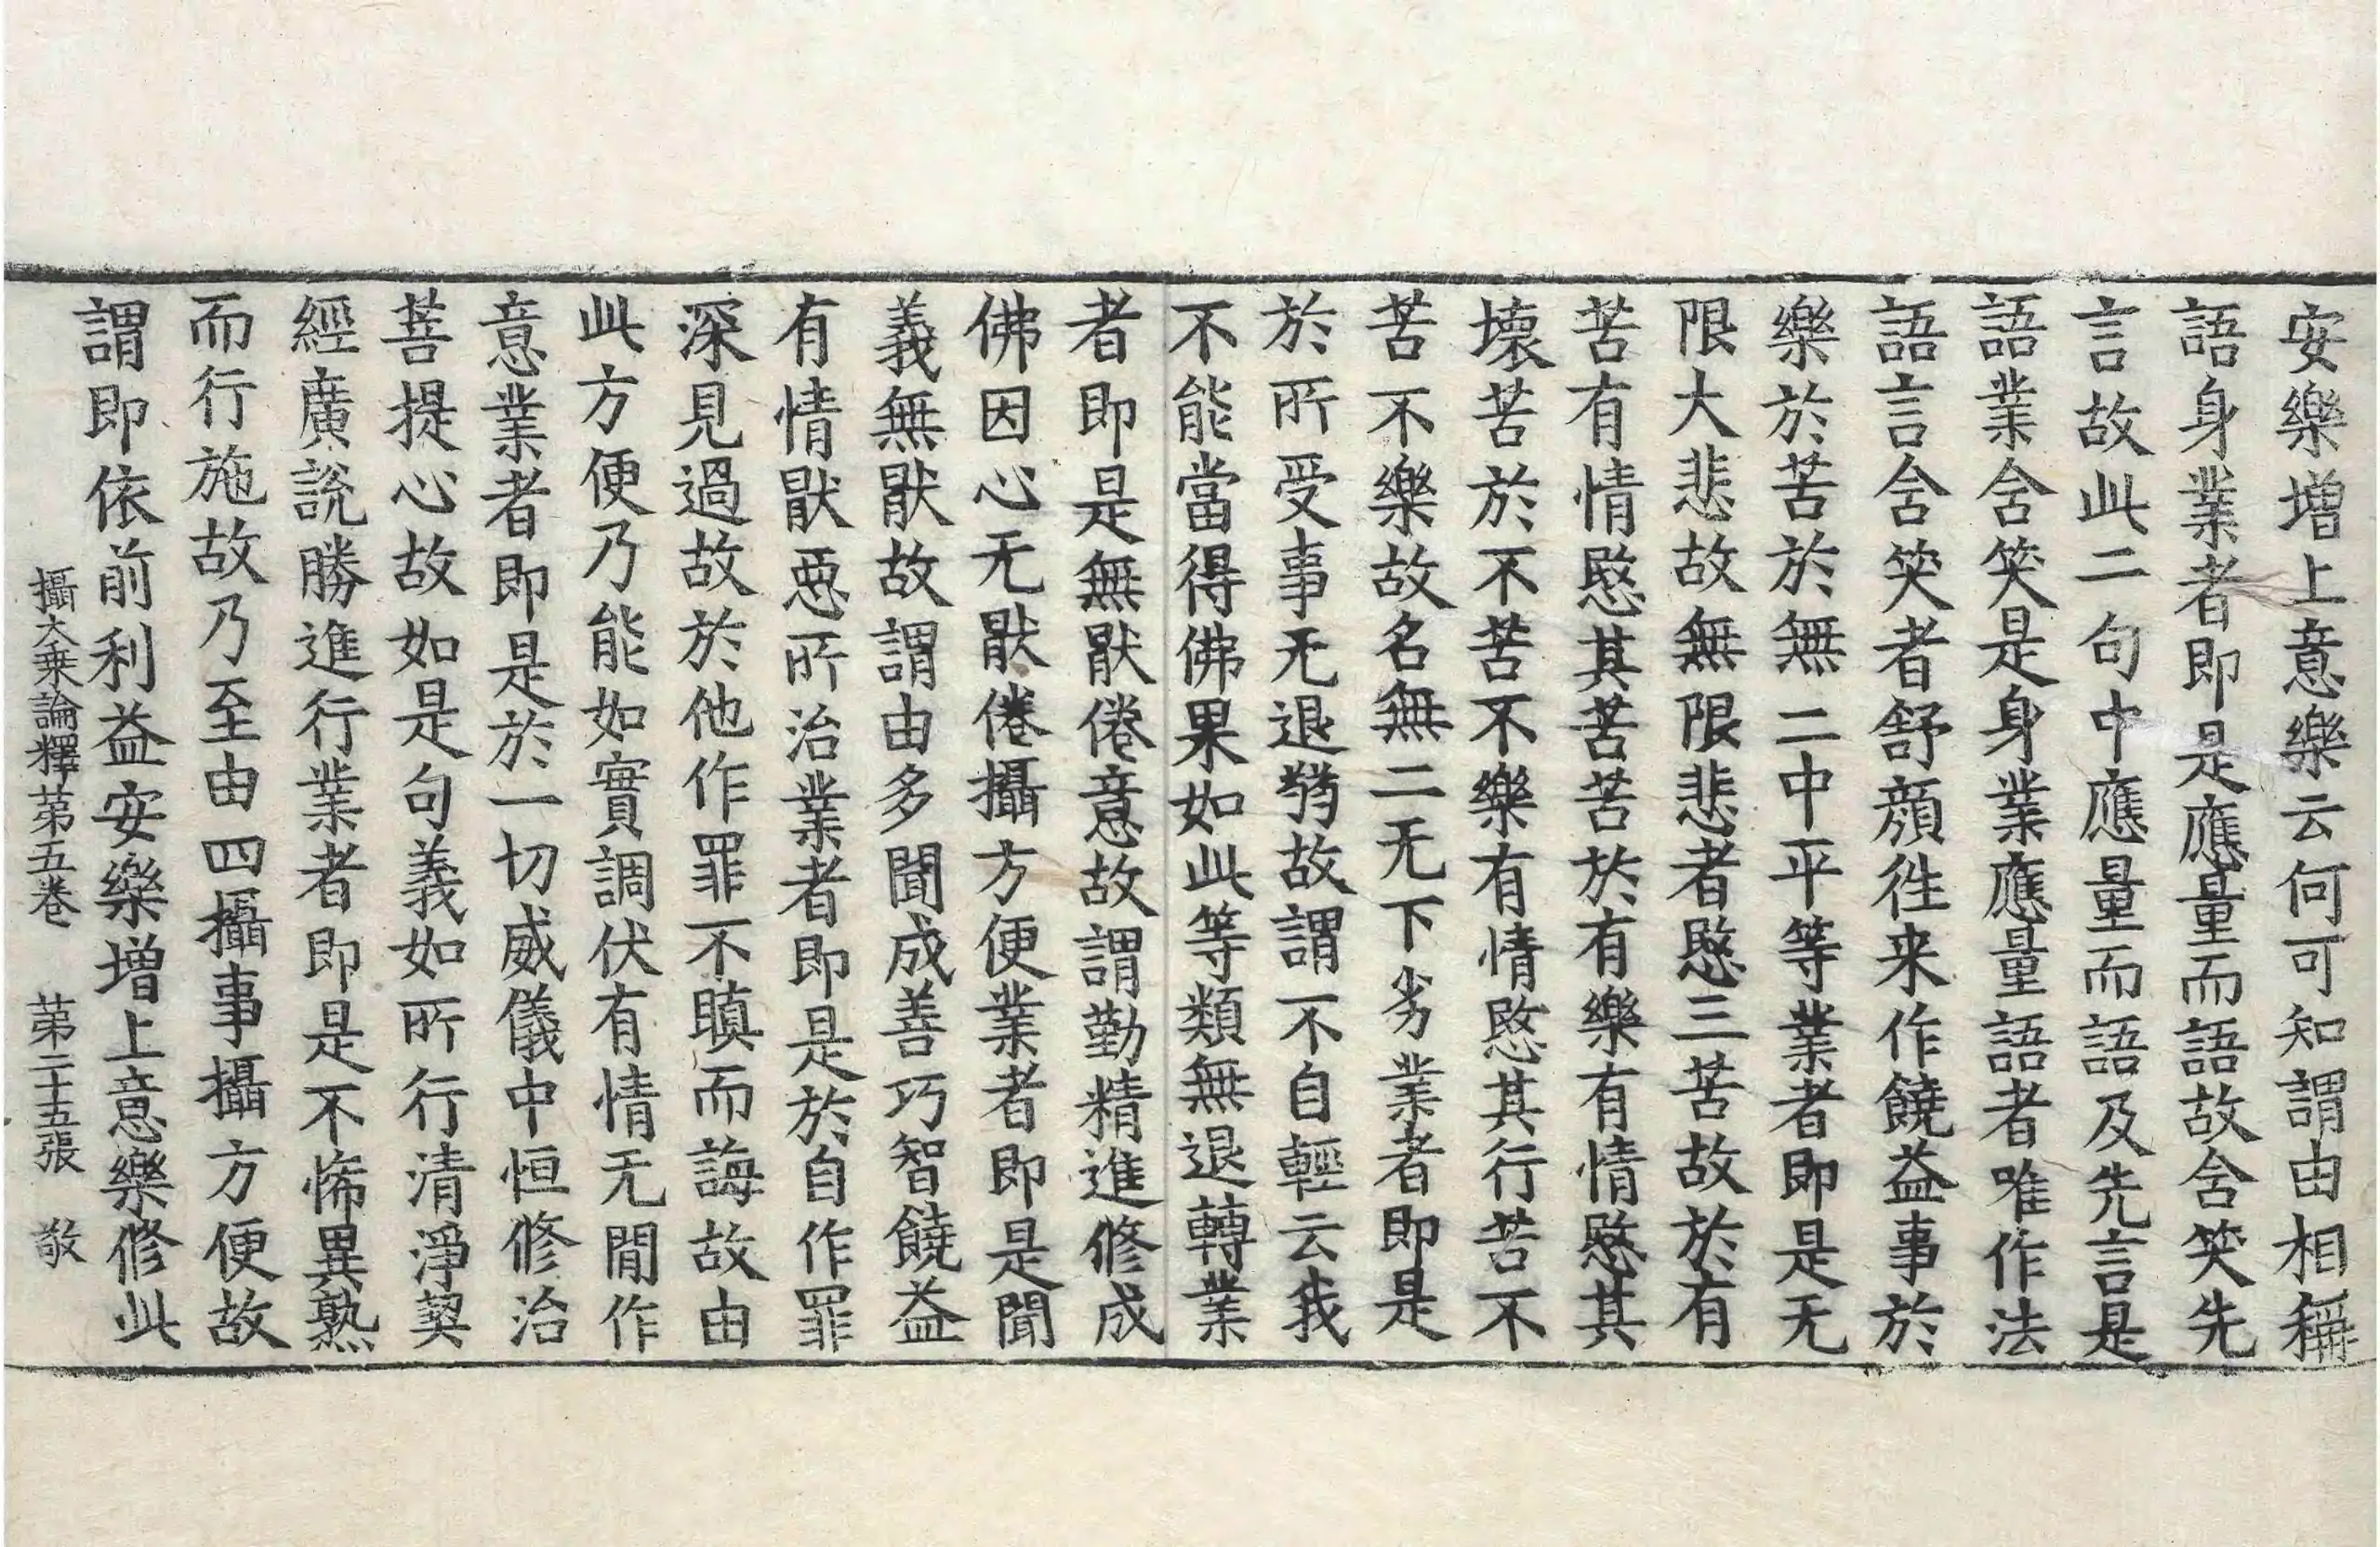 安樂增上意樂云何可知謂由相稱
語身業者即是應量而語故含笑先
言故此二句中應量而語及先言是
語業含笑是身業應量語者唯作法
語言含笑者舒顔往来作饒益事於
樂於苦於無二中平等業者即是无
限大悲故無限悲者愍三苦故於有
苦有情愍其苦苦於有樂有情愍其
壞苦於不苦不樂有情愍其行苦不
苦不樂故名無二无下劣業者即是
於所受事无退弱故謂不自輕云我
不能當得佛果如此等類無退轉業
者即是無猒倦意故謂勤精進修成
佛因心无猒倦攝方便業者即是聞
義無猒故謂由多聞成善巧智饒益
有情猒惡所治業者即是於自作罪
深見過故於他作罪不瞋而誨故由
此方便乃能如實調伏有情无閒作
意業者即是於一切威儀中恒修治
菩提心故如是句義如所行清淨契
經廣說勝進行業者即是不怖異熟
而行施故乃至由四攝事攝方便故
謂即依前利益安樂增上意樂修此
攝大乗論釋第五卷　第二十五張　敬